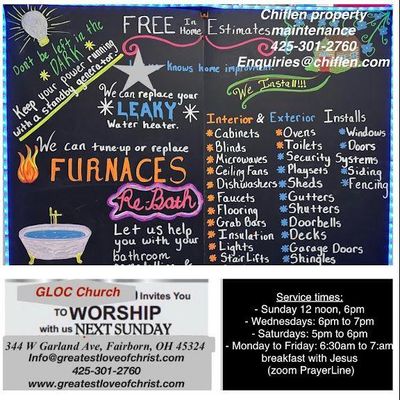 FREE In Home Estimates
Chiflen property
maintenance
425-301-2760
Enquiries@chiflen.com
Don't be left in the
DARK
Keep your power running
with a standby generator
Knows home improvement
We Install!!!
We can replace your
LEAKY
Water heater.
We can tune-up or replace
FURNACES
Re-Bath
Let us help
you with your
bathroom
Interior & Exterior Installs
Cabinets
Blinds
Microwaves
Ceiling Fans
Dishwashers
Faucets
Flooring
Grab Bars
Insulation
Lights
Stair Lifts
Ovens
Toilets
Security Systems
Playsets
Sheds
Gutters
Shutters
Doorbells
Decks
Garage Doors
Shingles
Windows
Doors
Siding
Fencing
GLOC Church Invites You
TO WORSHIP
with us NEXT SUNDAY
344 W Garland Ave, Fairborn, OH 45324
Info@greatestloveofchrist.com
425-301-2760
www.greatestloveofchrist.com
Service times:
- Sunday 12 noon, 6pm
- Wednesdays: 6pm to 7pm
- Saturdays: 5pm to 6pm
- Monday to Friday: 6:30am to 7:am
breakfast with Jesus
(zoom PrayerLine)